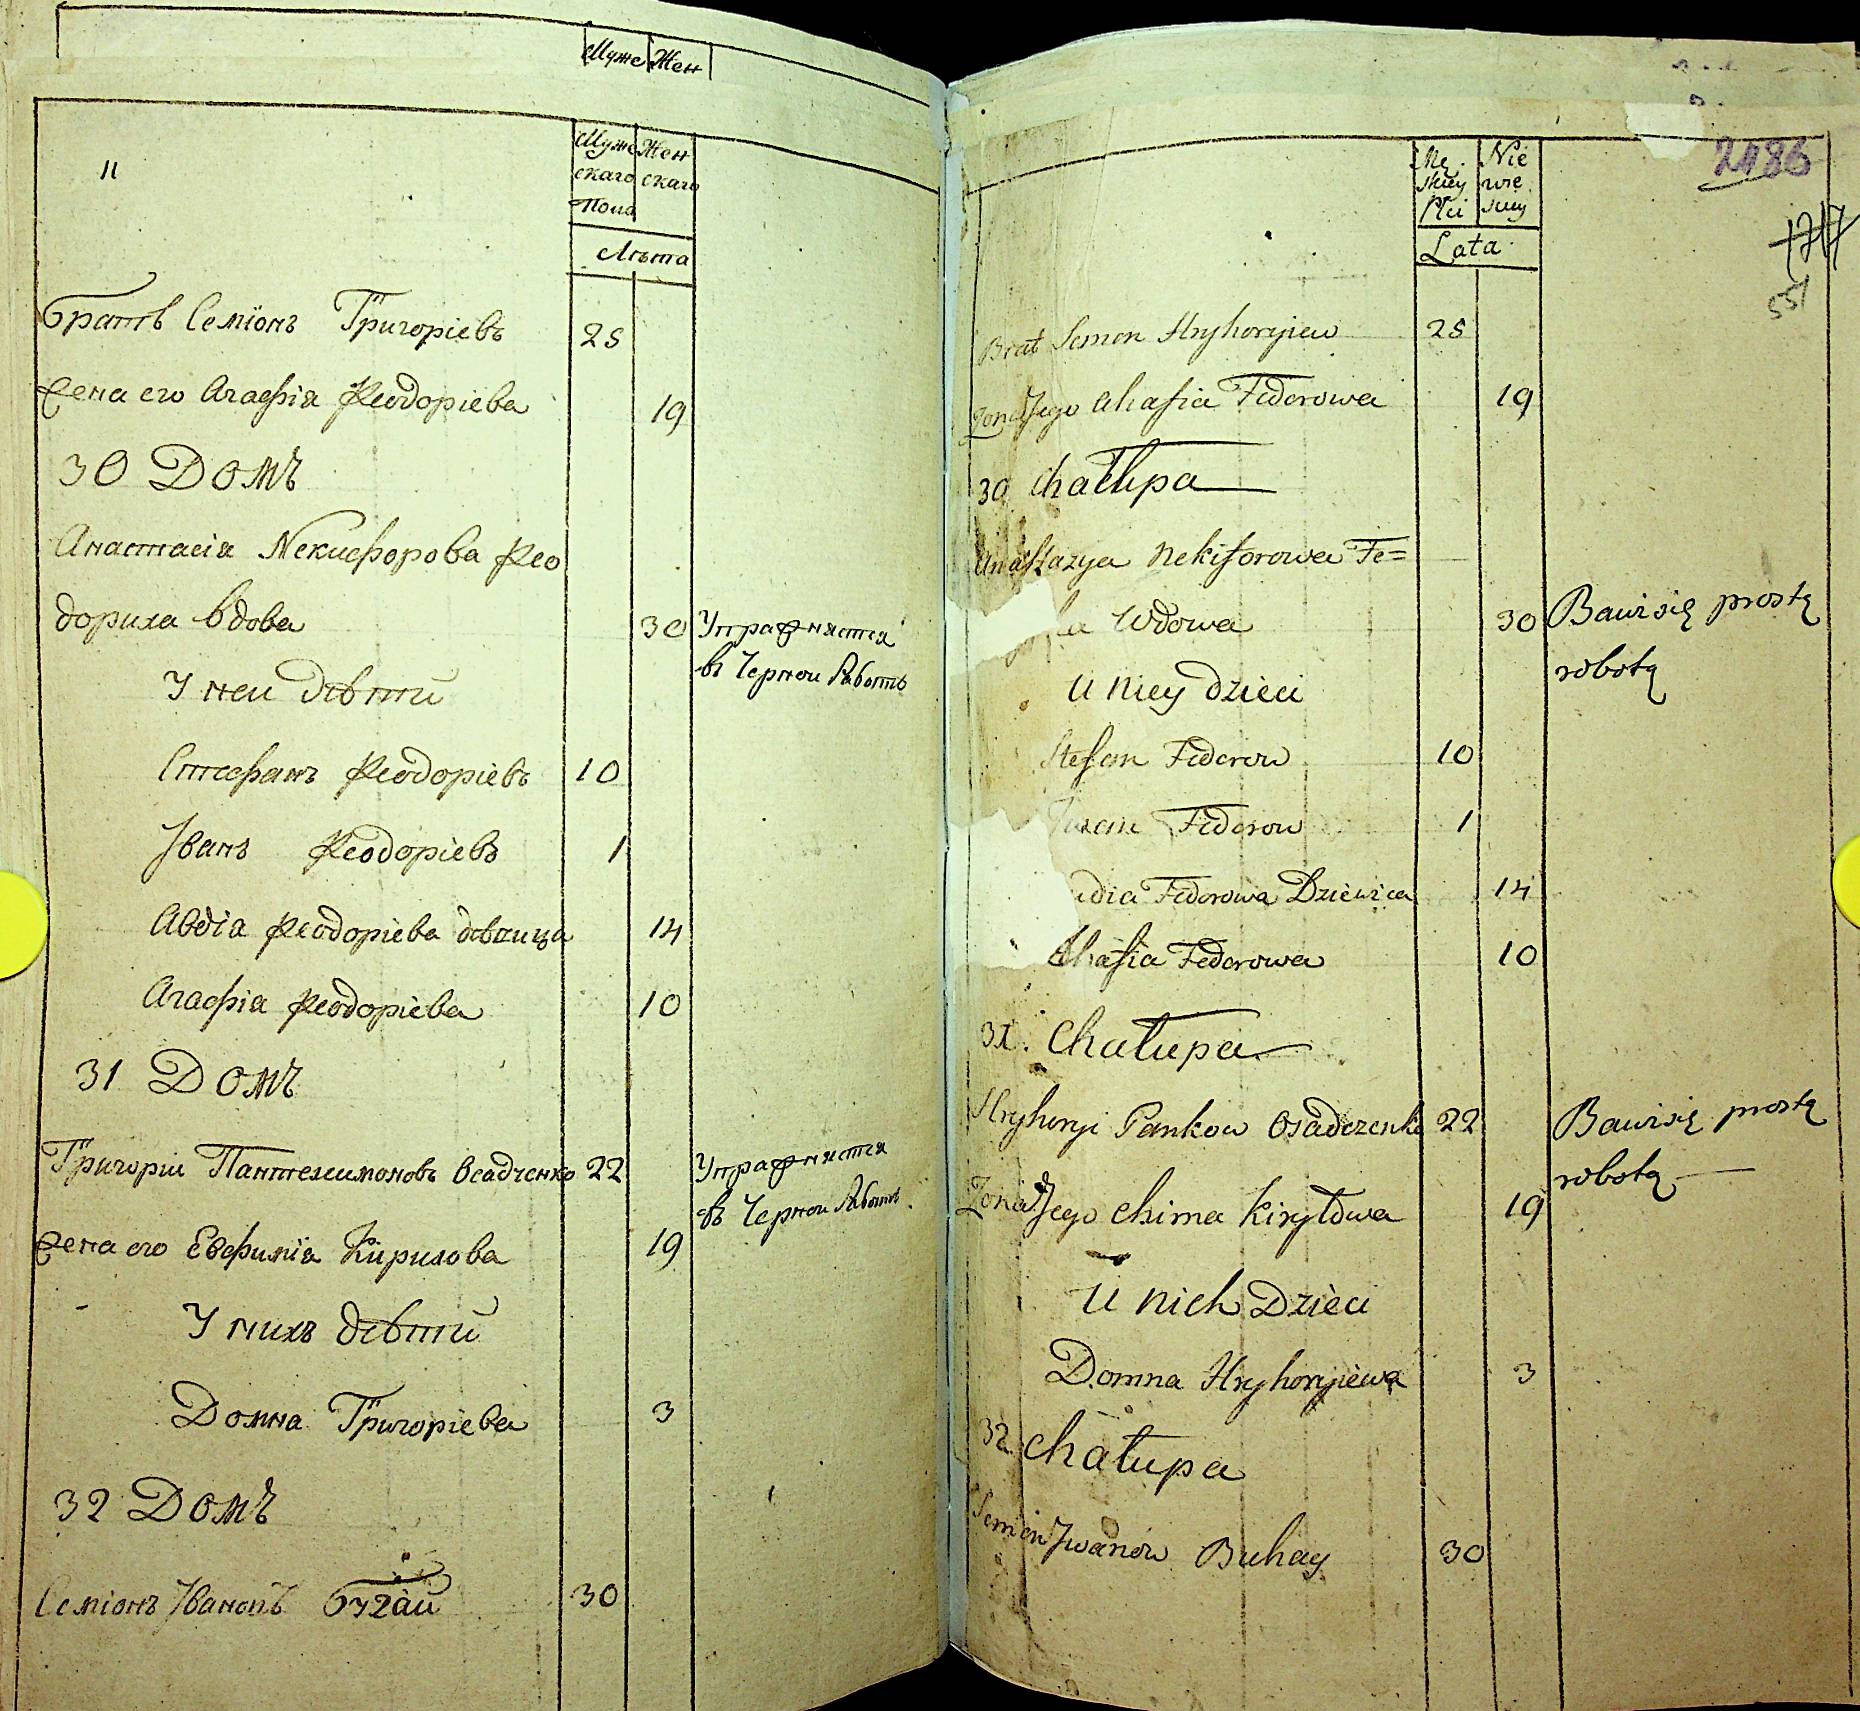 Муже Жен
11
Муже Жен
скаго скаго
Пола
Лѣта
братъ Семїонъ Григорїевъ 25
Жена его Агафїя Феодорїева 19
30 Домъ
Анастасїя Некифорова Фео
дориха вдова 30 Упражняется
в Черной Работѣ
У ней дѣти
Стефанъ Феодорїевъ 10
Іванъ Феодорїевъ 1
Авдїа Феодорїева дѣвица 14
Агафїя Феодорїева 10
31 Домъ
Григорїй Пантелимоновъ Осадченко 22 Упражняется
въ Черной Работѣ
Жена его Евфимїя Кирилова 19
У нихъ дѣти
Домна Григорїева 3
32 Домъ
Семїонъ Івановъ бугай 30
2486
717
551
Mę Nie
skiey wie
Płci skiey
Lata
Brat Semen Hryhoryiew 25
Żona Jego Ahafia Fedorowa 19
30 Chałupa
Anastazya Nekiforowa Fe=
Wdowa 30 Bawi się prostą
robotą
U Niey dzieci
Stefan Fedorow 10
Fedorow 1
Fedorowa Dziewica 14
Ahafia Fedorowa 10
31. Chałupa
Hryhoryi Pankow Osadczenko 22 Bawi się prostą
robotą
Żona Jego Chima Kiryłowa 19
U Nich Dzieci
Domna Hryhoryiewa 3
32 Chałupa
Semen Jwanow Buhay 30